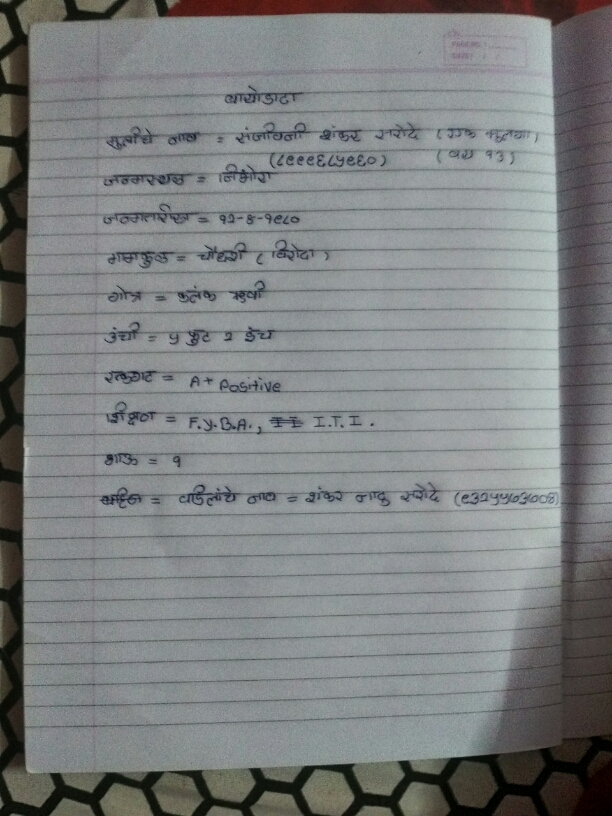 बायोडाटा
मुलीचे नाव = संजीवनी शंकर सरोदे (एक मुलगा)
(८९९९६८५९६०) (वय १३)
जन्मस्थळ = निंभोरा
जन्मतारीख = १२-६-१९८०
मामकुळ = चौधरी (विरोदा)
गोत्र = कलंक ऋषी
उंची = ५ फुट २ इंच
रक्तगट = A+ Positive
शिक्षण = F.Y.B.A., I.T.I.
भाऊ = १
वडिलांचे नाव = शंकर नाडु सरोदे